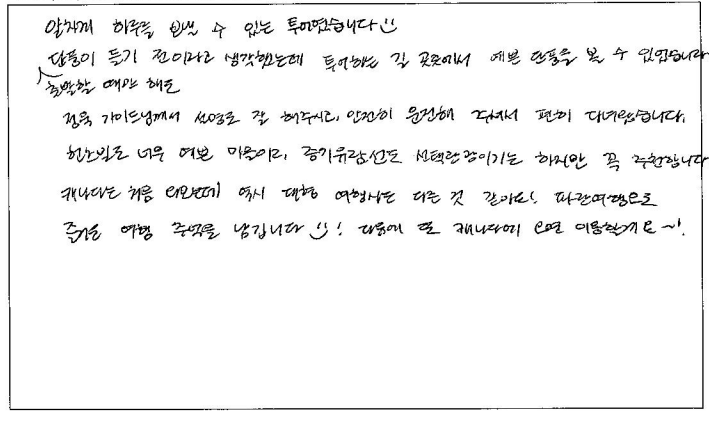 알차게 하루를 보낼 수 있는 투어였습니다 :)
단풍이 들기 전이라고 생각했는데 투어하는 길 곳곳에서 예쁜 단풍을 볼 수 있었습니다
출발할 때만 해도
정욱 가이드님께서 설명도 잘 해주시고, 안전히 운전해 주셔서 편히 다녀왔습니다.
헌츠빌도 너무 예쁜 마을이고, 증기유람선도 선택관광이기는 하지만 꼭 추천합니다
캐나다는 처음 와봤는데 역시 대형 여행사는 다른 것 같아요! 파란여행으로
즐거운 여행 추억을 남깁니다 :) ! 다음에 또 캐나다에 오면 이용할게요~!